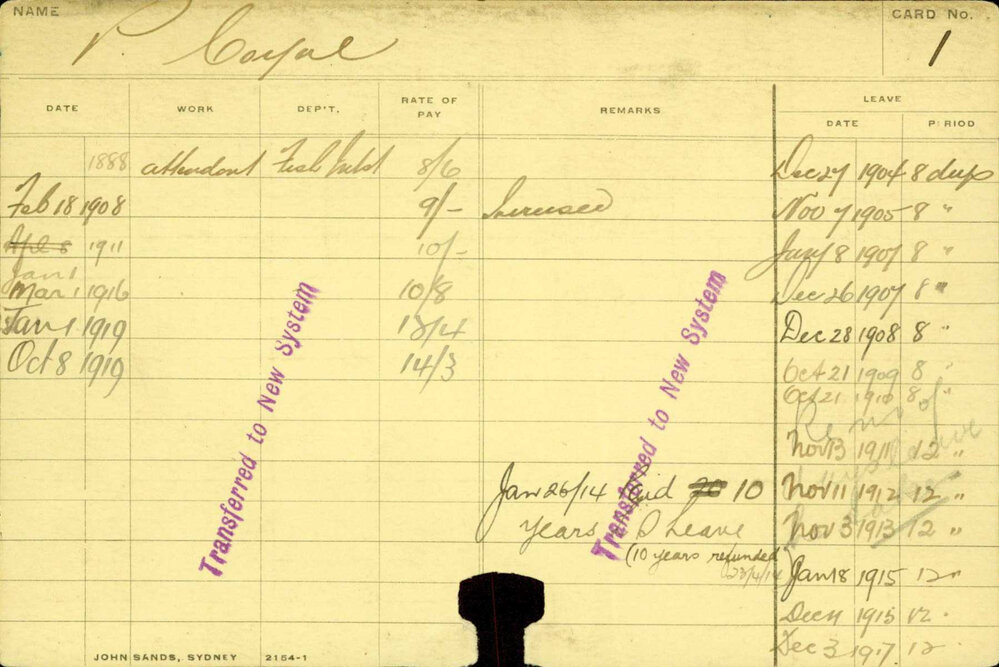 NAME
P Coyal
CARD No.
1
DATE WORK DEP'T. RATE OF PAY REMARKS LEAVE
DATE PERIOD
1888 attendant Fish Mkt 8/6 Dec 27 1904 8 days
Feb 18 1908 9/- Increased Nov 7 1905 8 "
Apl 8 1911 10/- Jany 8 1907 8 "
Jan 1
Mar 1 1916 10/8 Dec 26 1907 8 "
Jan 1 1919 13/4 Dec 28 1908 8 "
Oct 8 1919 14/3 Oct 21 1909 8 "
Oct 21 1910 8 "
Nov 13 1911 12 "
Jan 26/14 Paid 20 10 Nov 11 1912 12 "
years Leave Nov 3 1913 12 "
(10 years refunded
23/4/14 Jan 18 1915 12 "
Dec 11 1915 12 "
Dec 3 1917 12
Transferred to New System
Transferred to New System
JOHN SANDS, SYDNEY 2154-1